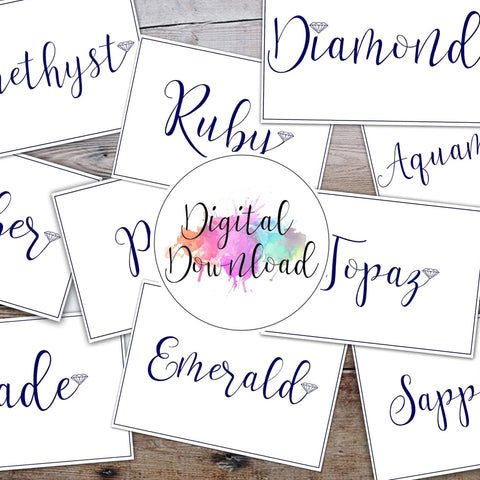 methyst
Diamond
Ruby
Aquam
ber
P
Digital
Download
Topaz
ade
Emerald
Sapp